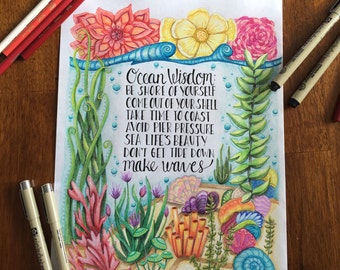 Ocean Wisdom:
BE SHORE OF YOURSELF
COME OUT OF YOUR SHELL
TAKE TIME TO COAST
AVOID PIER PRESSURE
SEA LIFE'S BEAUTY
DON'T GET TIDE DOWN
make waves